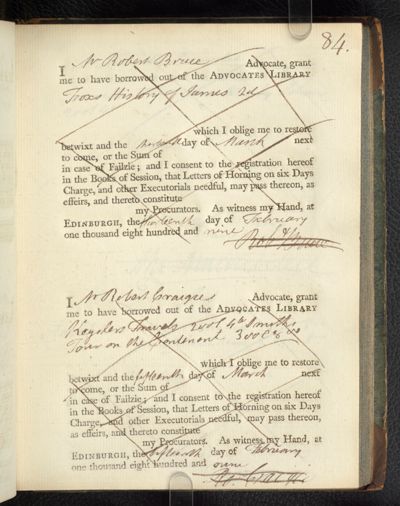 84.
I Mr Robert Bruce Advocate, grant
me to have borrowed out of the ADVOCATES LIBRARY
Foxs History of James 2d
which I oblige me to restore
betwixt and the day of March next
to come, or the Sum of
in case of Failzie; and I consent to the registration hereof
in the Books of Session, that Letters of Horning on six Days
Charge, and other Executorials needful, may pass thereon, as
effeirs, and thereto constitute
my Procurators. As witness my Hand, at
EDINBURGH, the day of February
one thousand eight hundred and nine
Rob Bruce
I Mr Robert Craigie Advocate, grant
me to have borrowed out of the ADVOCATES LIBRARY
Keyslers Travels 2 vol 4to Smiths
Tour on the Continent 3 vol 8vo
which I oblige me to restore
betwixt and the fifteenth day of March next
to come, or the Sum of
in case of Failzie; and I consent to the registration hereof
in the Books of Session, that Letters of Horning on six Days
Charge, and other Executorials needful, may pass thereon,
as effeirs, and thereto constitute
my Procurators. As witness my Hand, at
EDINBURGH, the fifteenth day of February
one thousand eight hundred and nine
Ro. Craigie